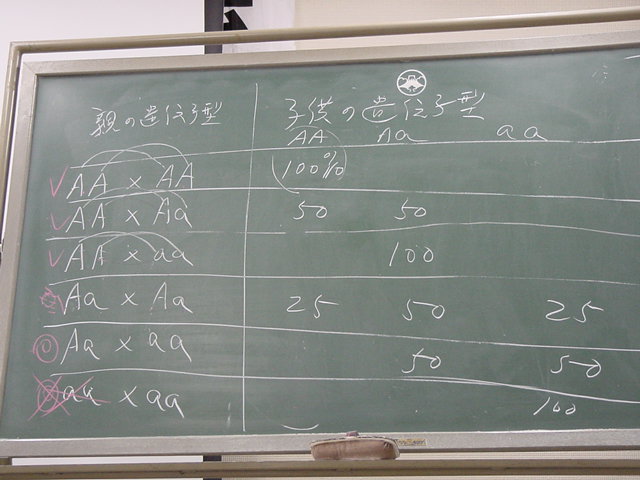 親の遺伝子型 子供の遺伝子型
AA Aa aa
AA × AA 100%
AA × Aa 50 50
AA × aa 100
Aa × Aa 25 50 25
Aa × aa 50 50
aa × aa 100